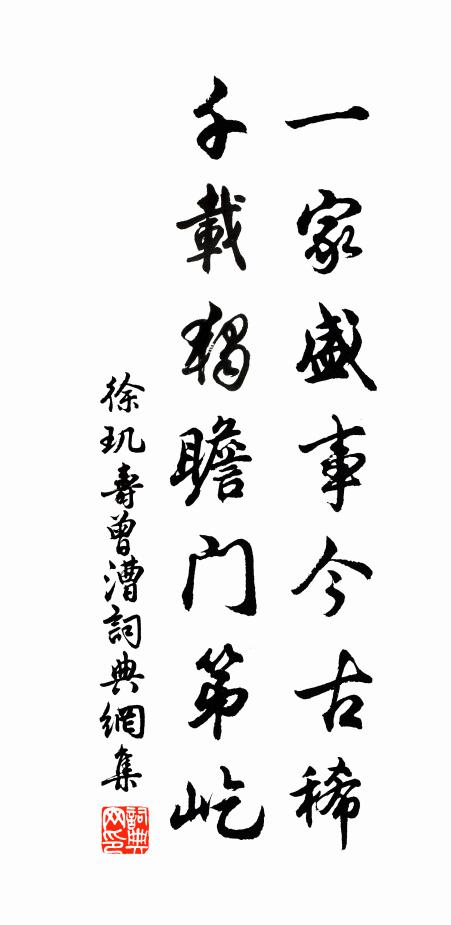 一家盛事今古稀
千載獨瞻門第屹
徐璣壽曾漕詞典網集
詞典網印